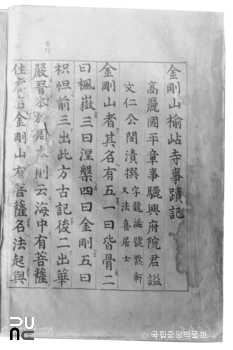 金剛山楡岾寺事蹟記
高麗國平章事驪興府院君謚
文仁公閔漬撰 字龍涎號默軒 又法喜居士
金剛山者其名有五一曰皆骨二
曰楓嶽三曰涅槃四曰金剛五曰
枳怛前三出此方古記後二出華
嚴周本則云海中有菩薩
住處名金剛山有菩薩名法起與
국립중앙박물관